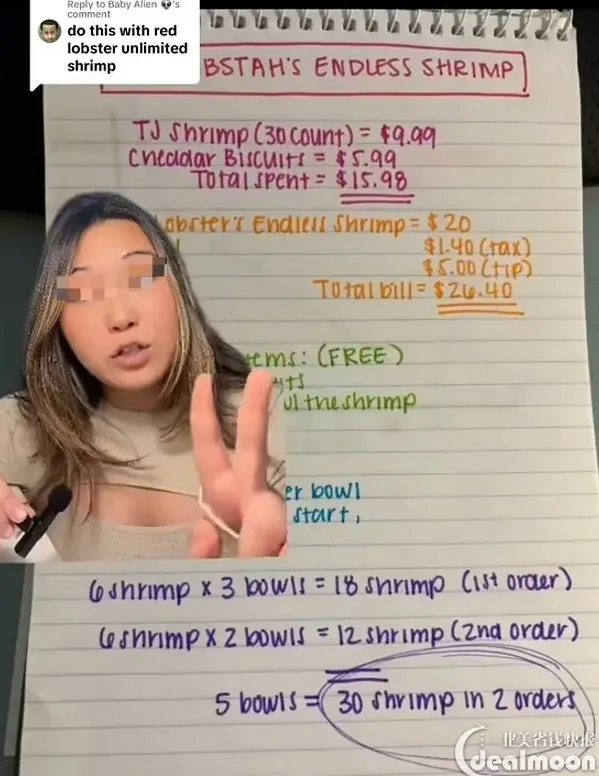 Reply to Baby Alien 👽's
comment
do this with red
lobster unlimited
shrimp
BSTAH'S ENDLESS SHRIMP
TJ Shrimp (30 count) = $9.99
Cheddar Biscuits = $5.99
Total spent = $15.98
Lobster's Endless Shrimp = $20
$1.40 (tax)
$5.00 (tip)
Total bill = $26.40
tems: (FREE)
ul the shrimp
er bowl
start,
6 shrimp x 3 bowls = 18 shrimp (1st order)
6 shrimp x 2 bowls = 12 shrimp (2nd order)
5 bowls = 30 shrimp in 2 orders
北美省钱快报
dealmoon